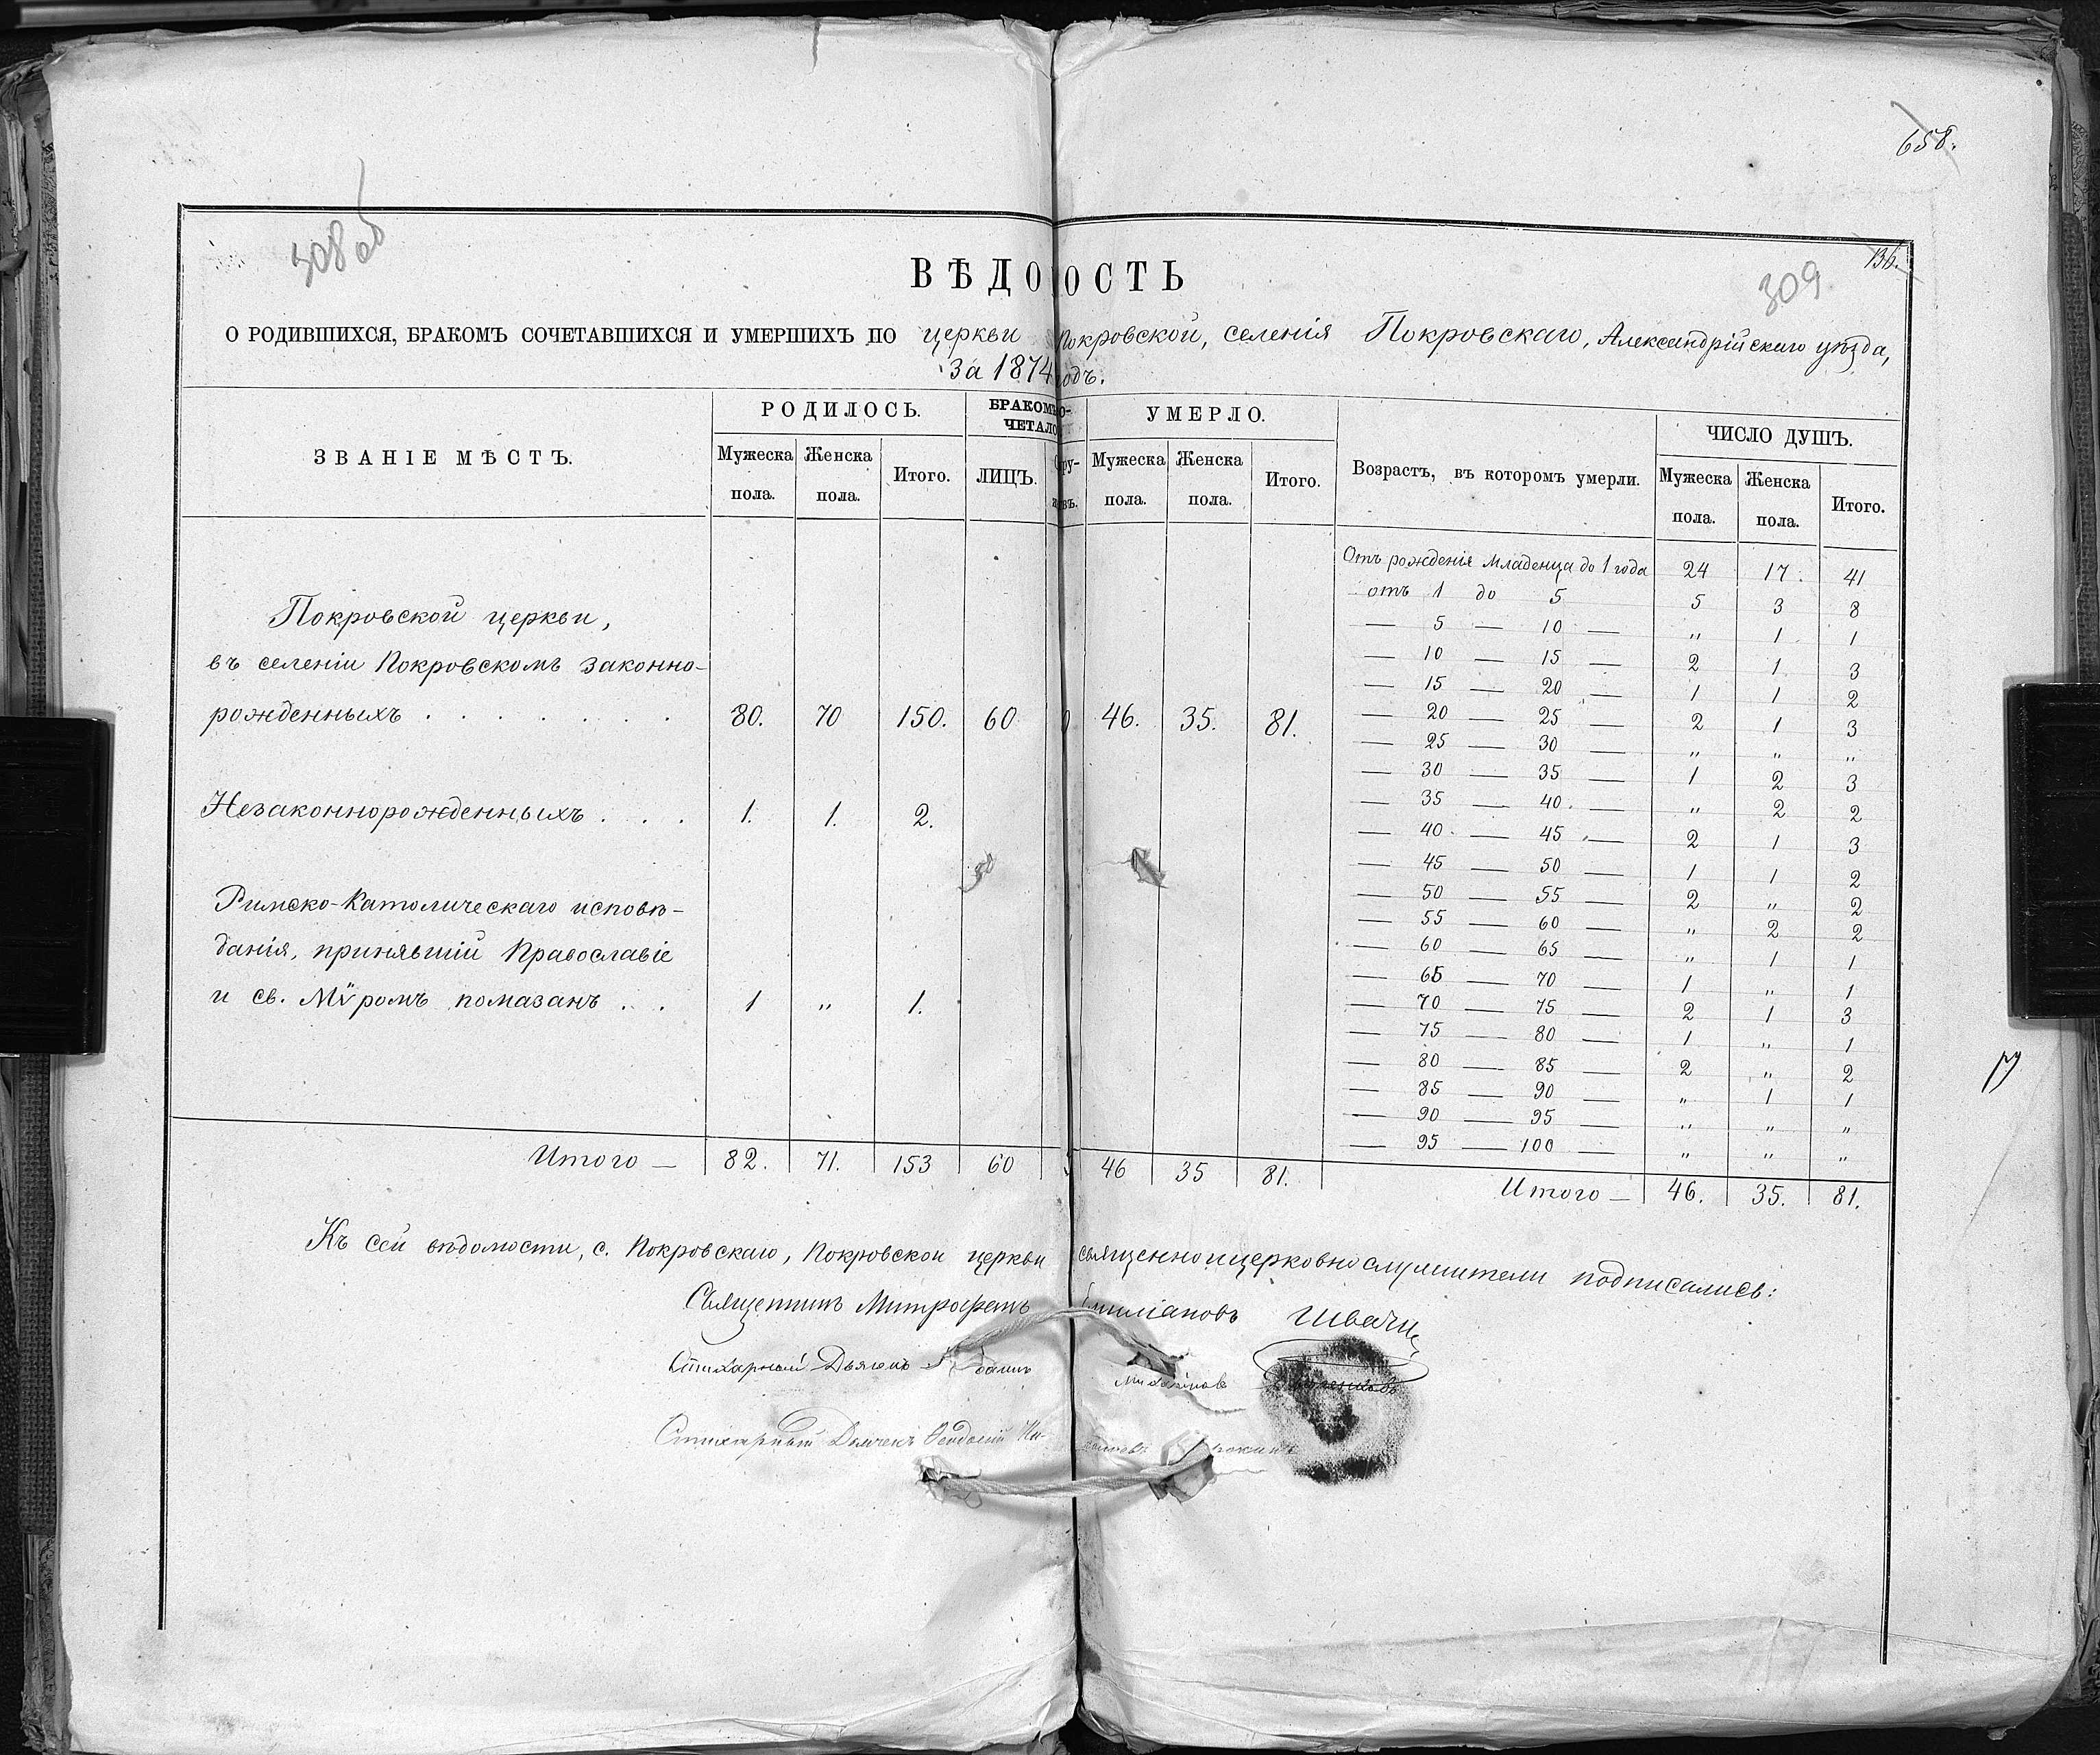 658.
308 об
136.
309
ВѢДО ОСТЬ
О РОДИВШИХСЯ, БРАКОМЪ СОЧЕТАВШИХСЯ И УМЕРШИХЪ ПО церкви Покровской, селенія Покровскаго, Александрійскаго уѣзда,
за 1874 одъ.
ЗВАНІЕ МѢСТЪ. РОДИЛОСЬ. БРАКОМЪ О- УМЕРЛО. Возрастъ, въ которомъ умерли. ЧИСЛО ДУШЪ.
ЧЕТАЛО
Мужеска Женска Итого. ЛИЦЪ. ру- Мужеска Женска Итого. Мужеска Женска Итого.
пола. пола. въ. пола. пола. пола. пола.
Отъ рожденія младенца до 1 года 24 17. 41
отъ 1 до 5 5 3 8
— 5 — 10 — " 1 1
— 10 — 15 — 2 1 3
— 15 — 20 — 1 1 2
— 20 — 25 — 2 1 3
— 25 — 30 — " " "
— 30 — 35 — 1 2 3
— 35 — 40. — " 2 2
— 40 — 45 — 2 1 3
— 45 — 50 — 1 1 2
— 50 — 55 — 2 " 2
— 55 — 60 — " 2 2
— 60 — 65 — " 1 1
— 65 — 70 — 1 " 1
— 70 — 75 — 2 1 3
— 75 — 80 — 1 " 1
— 80 — 85 — 2 " 2
— 85 — 90 — " 1 1
— 90 — 95 — " " "
— 95 — 100 — " " "
Покровской церкви,
въ селеніи Покровскомъ законно-
рожденныхъ . . . . . . . 80. 70 150. 60 0 46. 35. 81.
Незаконнорожденныхъ . . . 1. 1. 2.
Римско-Католическаго исповѣ-
данія, принявшій Православіе
и св. Мѵромъ помазанъ . . 1 " 1.
Итого — 82. 71. 153 60 46 35 81. Итого — 46. 35. 81.
Къ сей вѣдомости, с. Покровскаго, Покровской церкви священноицерковнослужители подписались:
Священникъ Митрофанъ Швачи
Стихарный Дьячекъ
Стихарный Дьячекъ Ѳеодосій